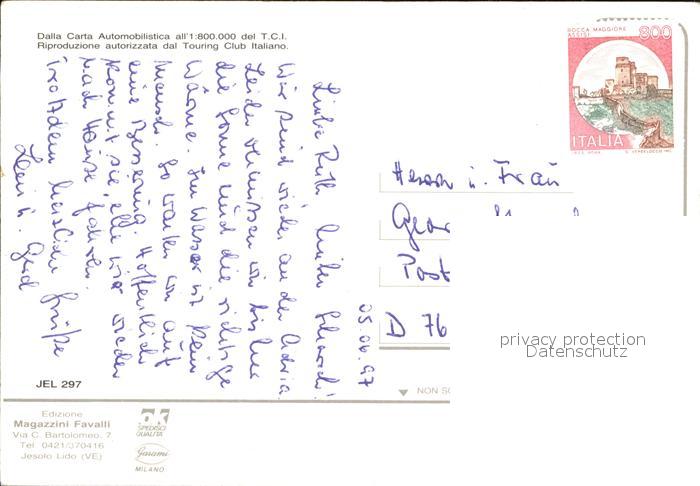 Dalla Carta Automobilistica all'1:800.000 del T.C.I.
Riproduzione autorizzata dal Touring Club Italiano.
ROCCA MAGGIORE
ASSISI
800
ITALIA
05.06.97
Liebe Ruth, lieber
Wir sind wieder an der Adria.
Leider vermissen wir bisher
die Sonne und die richtige
Wärme. Im Wasser ist kein
Mensch. So warten wir auf
eine Besserung. Hoffentlich
kommt sie, ehe wir wieder
nach Hause fahren.
Trotzdem herzliche Grüße
Gerd
Herrn u. Frau
Geor
Post
D 76
privacy protection
Datenschutz
JEL 297
NON SC
Edizione
Magazzini Favalli
Via C. Bartolomeo, 7
Tel. 0421/370416
Jesolo Lido (VE)
SPEDISCI
QUALITÀ
Garami
MILANO